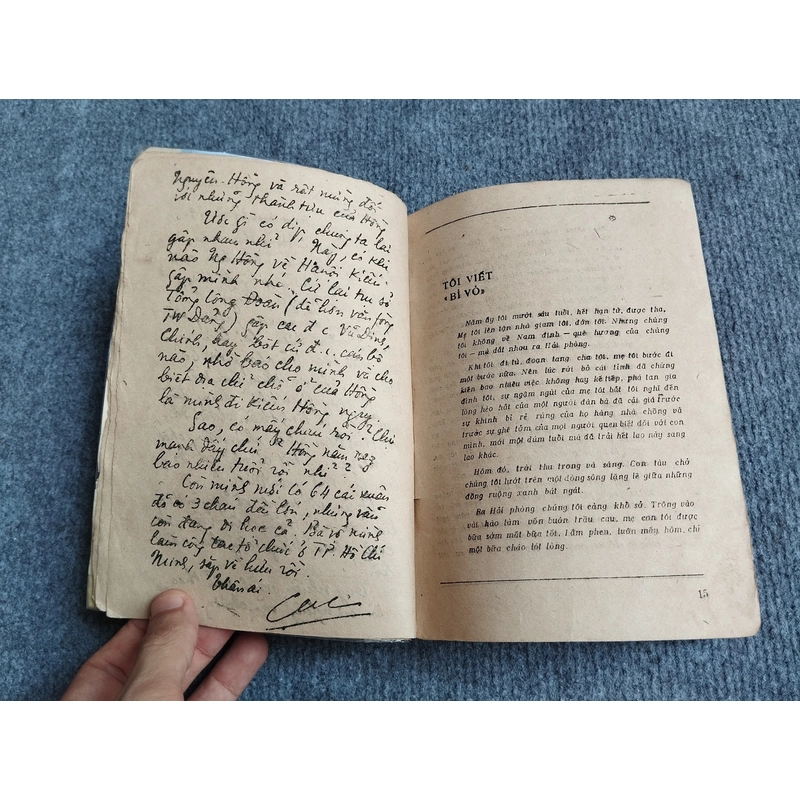 Nguyên-Hồng và rất mừng đối
với những thành tựu của Hồng
Ước gì có dịp chúng ta lại
gặp nhau nhỉ? Này, có khi
nào Ng Hồng về Hànội kiếm
gặp mình nhé. Cứ lại trụ sở
Tổng Công Đoàn (để hơn văn fòng
TW Đảng) gặp các đ.c Vũ Định,
Chính, hay bất cứ đ.c. cán bộ
nào, nhờ báo cho mình và cho
biết địa chỉ chỗ ở của Hồng
là mình đi kiếm Hồng ngay.
Sao, có mấy cháu rồi? Chị
mạnh đấy chứ? Hồng năm nay
bao nhiêu tuổi rồi nhỉ?
Còn mình mới có 64 cái xuân
đã có 3 cháu đều lớn, nhưng vẫn
còn đang đi học cả. Bà vợ mình
làm công tác tổ chức ở TP. Hồ Chí
Minh, sắp về hưu rồi.
Thân ái
TÔI VIẾT
«BỈ VỎ»
Năm ấy tôi mười sáu tuổi, hết hạn tù, được tha,
Mẹ tôi lên tận nhà giam tôi, đón tôi. Nhưng chúng
tôi không về Nam định – quê hương của chúng
tôi – mà dắt nhau ra Hải phòng.
Khi tôi đi tù, đoạn tang cha tôi, mẹ tôi bước đi
một bước nữa. Nên lúc rứt bỏ cái tĩnh đã chứng
kiến bao nhiêu việc không hay kế tiếp, phá tan gia
đình tôi, sự ngậm ngùi của mẹ tôi bắt tôi nghĩ đến
lòng héo hắt của một người đàn bà đã cải giá trước
sự khinh bỉ rẻ rúng của họ hàng nhà chồng và
trước sự ghẻ tởm của một người quen biết đối với con
mình, mới một dúm tuổi mà đã trải hết lao này sang
lao khác.
Hôm đó, trời thu trong và sáng. Con tàu chở
chúng tôi lướt trên một dòng sông lặng lẽ giữa những
đồng ruộng xanh bát ngát.
Ra Hải phòng chúng tôi càng khổ sở. Trông vào
vài hào lãm vốn buôn trầu cau, mẹ con tôi được
bữa sớm mất bữa tốt. Lắm phen, luôn mấy hôm, chỉ
một bữa cháo tốt lòng.
15